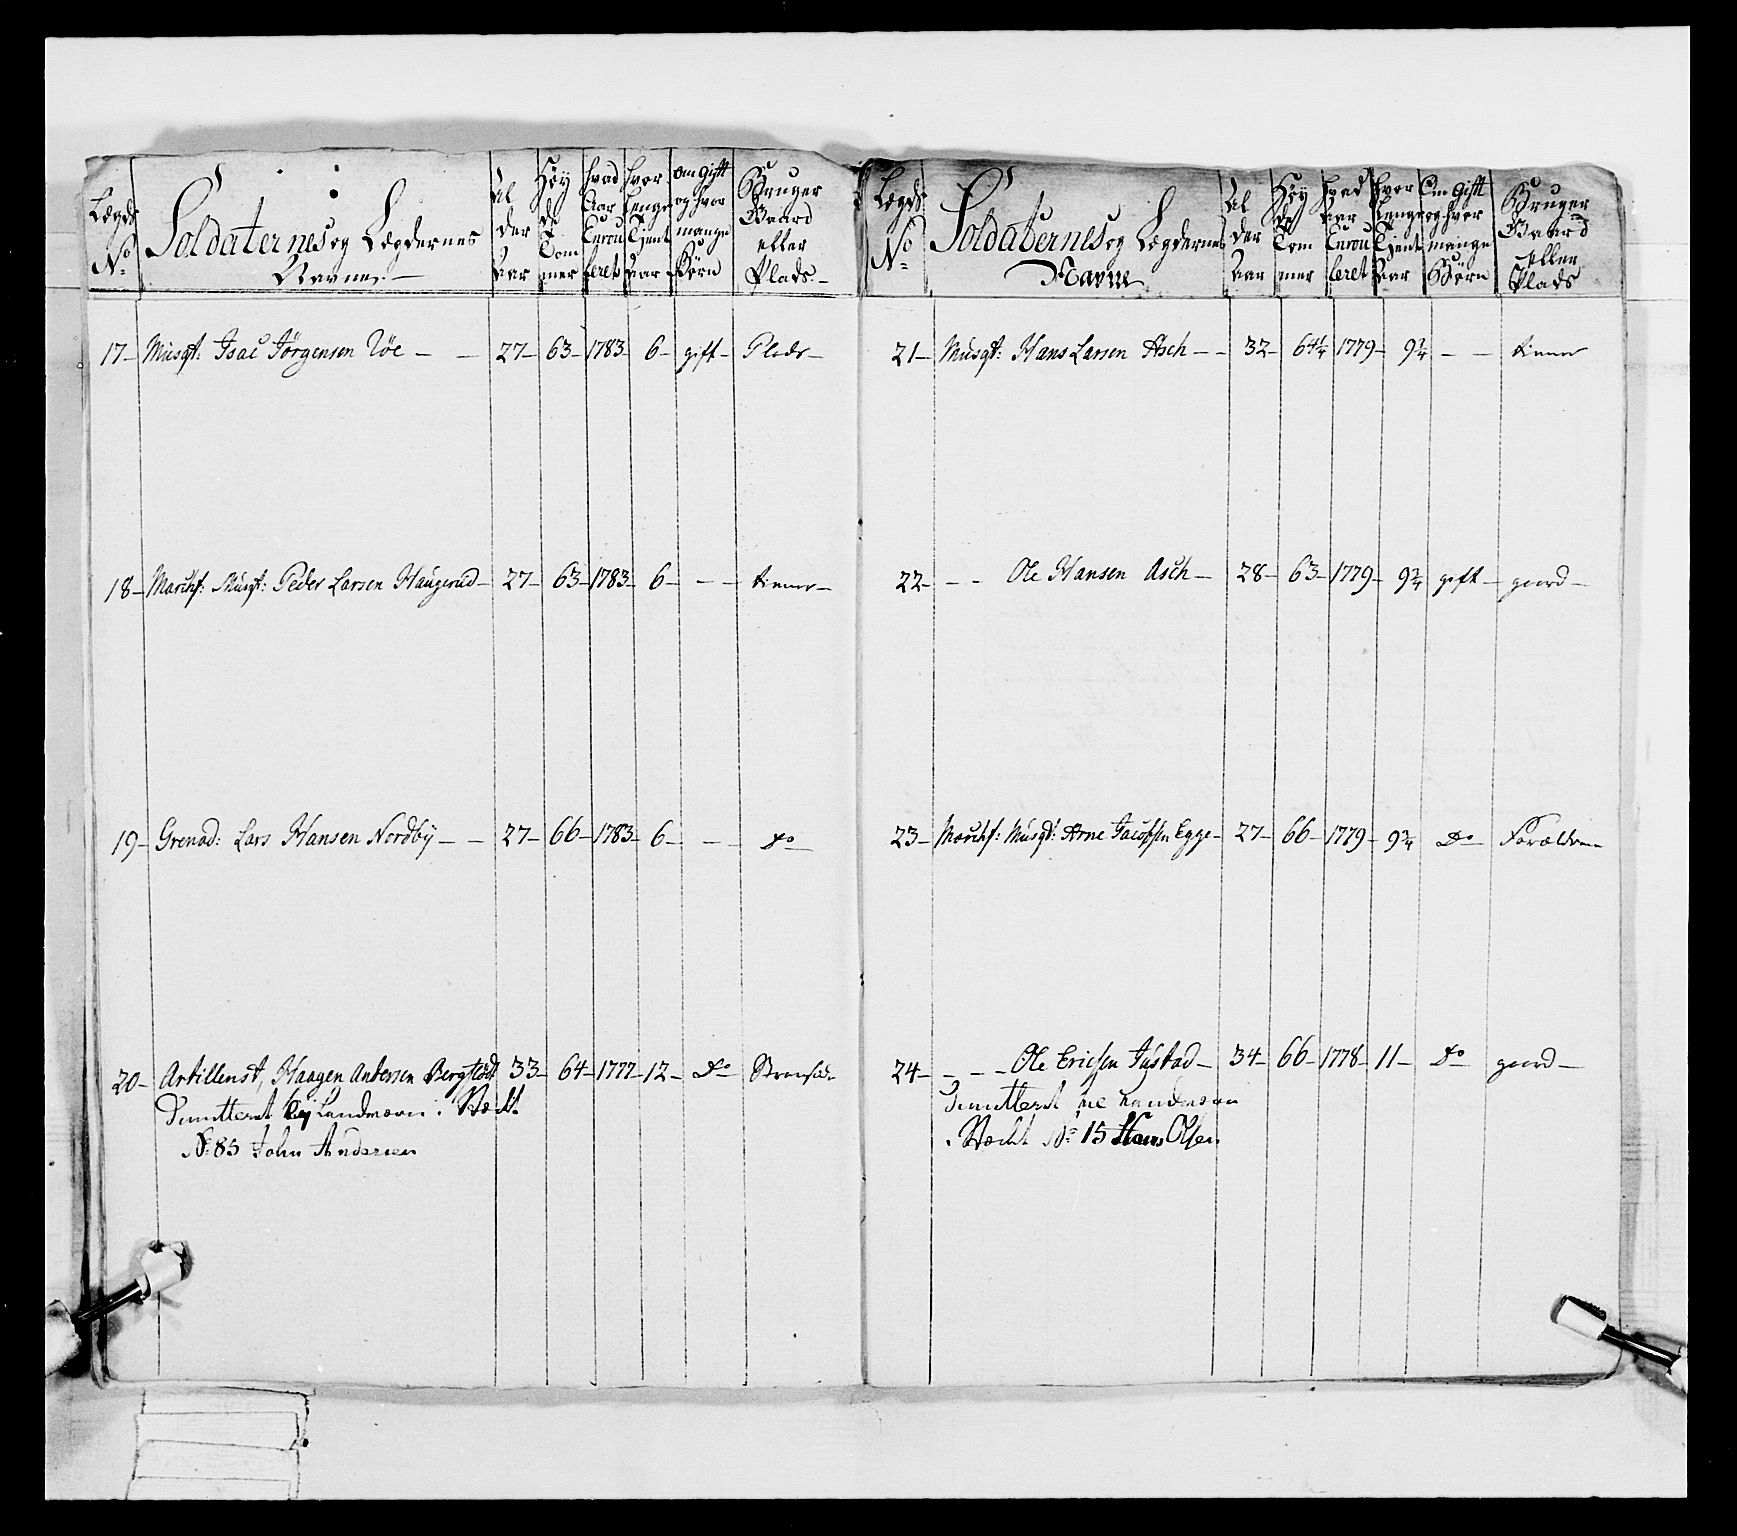 Lægds No Soldaternes og Lægdernes Navne. Al der Aar Høy de Tom mer hvad Aar Enrou leret hvor lenge Tient Aar om gift og hvor mange Børn Bruger Gaard eller Plads
17 Musqt: Isac Jørgensen 27 63 1783 6 gift Plads
18 Marckf: Musqt: Peder Larsen Haugerud 27 63 1783 6 - - tiener
19 Grenad: Lars Hansen Nordby 27 66 1783 6 - - Do
20 Artillerist, Haagen Andersen 33 64 1777 12 Do
Dimitteret Landværn i Vacht
No 85 John Andersen
Lægds No Soldaternes og Lægdernes Navne Al der Aar Høy de Tom mer hvad Aar Enrou leret hvor lenge Tient Aar Om gift og hvor mange Børn Bruger Gaard eller Plads
21 Musqt: Hans Larsen Asch 32 64¼ 1779 9¾ - - tiener
22 - - Ole Hansen Asch 28 63 1779 9¾ gift gaard
23 Marckf: Musqt: Arne Jacobsen Egge 27 66 1779 9¾ Do Forældrene
24 - - - Ole Ericsen 34 66 1778 11 Do gaard
Dimitteret Landværn
Vacht No 15 Hans Olsen